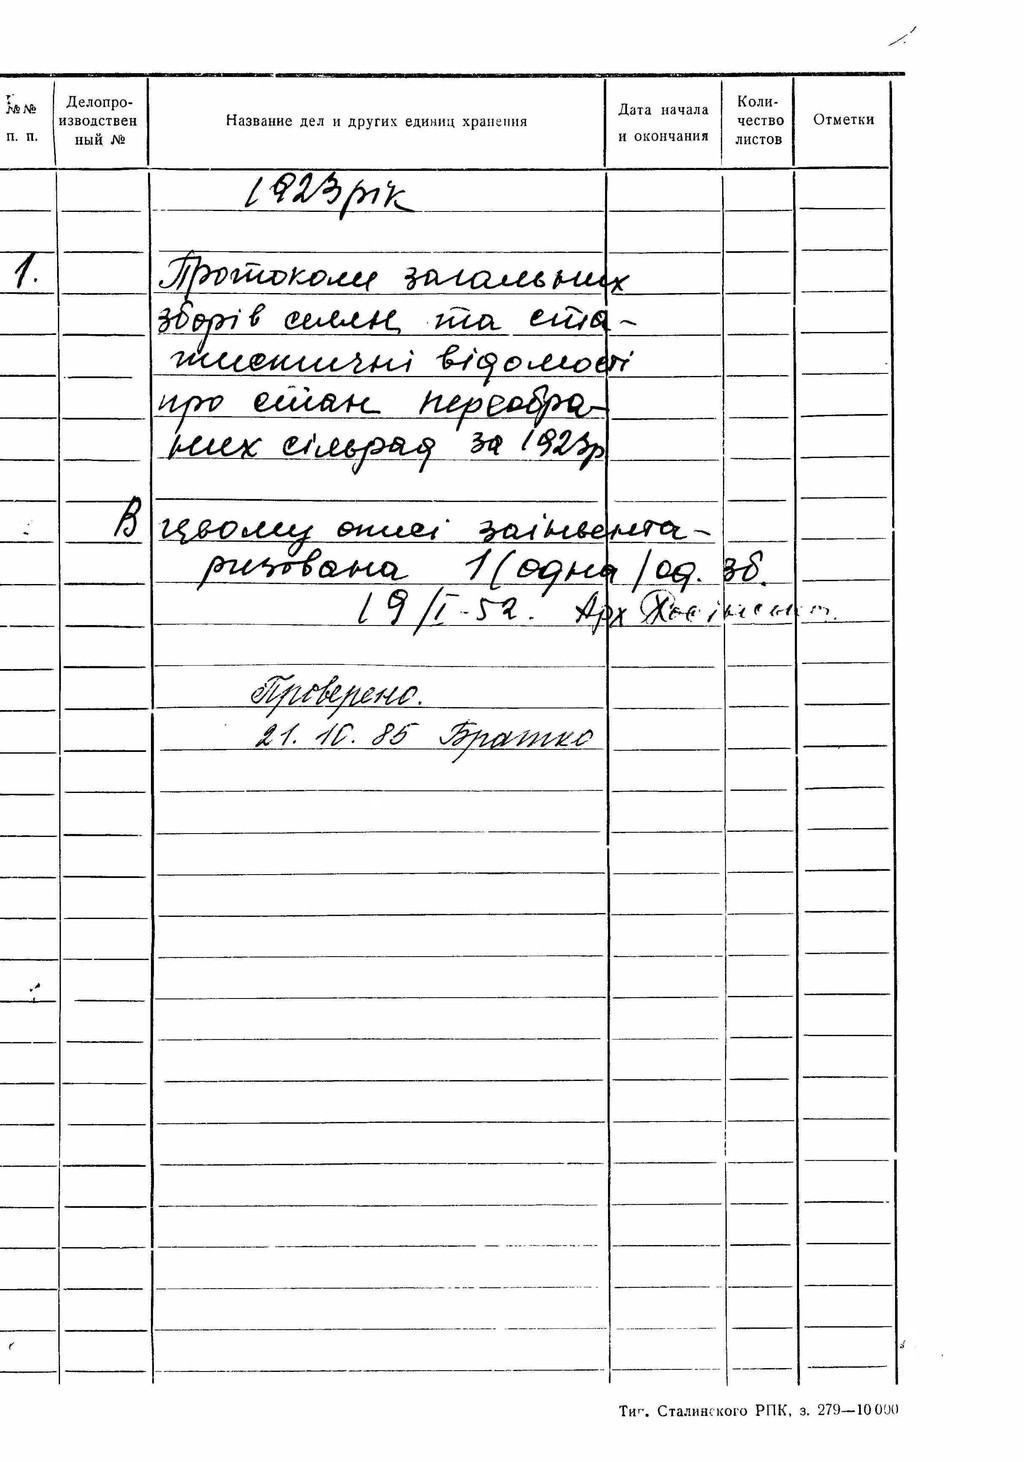 1.
№№ п. п.
Делопро-
изводствен
ный №
Название дел и других единиц хранения
Дата начала
и окончания
Коли-
чество
листов
Отметки
1923 рік
1. Протоколи загальних
зборів селян та ста-
тистичні відомості
про стан переобра-
них сільрад за 1923р
В цьому описі заінвента-
ризована 1 (одна/од. зб.
19/I-52. Арх
Проверено.
21.10.85 Братко
Тип. Сталинского РПК, з. 279—10 000